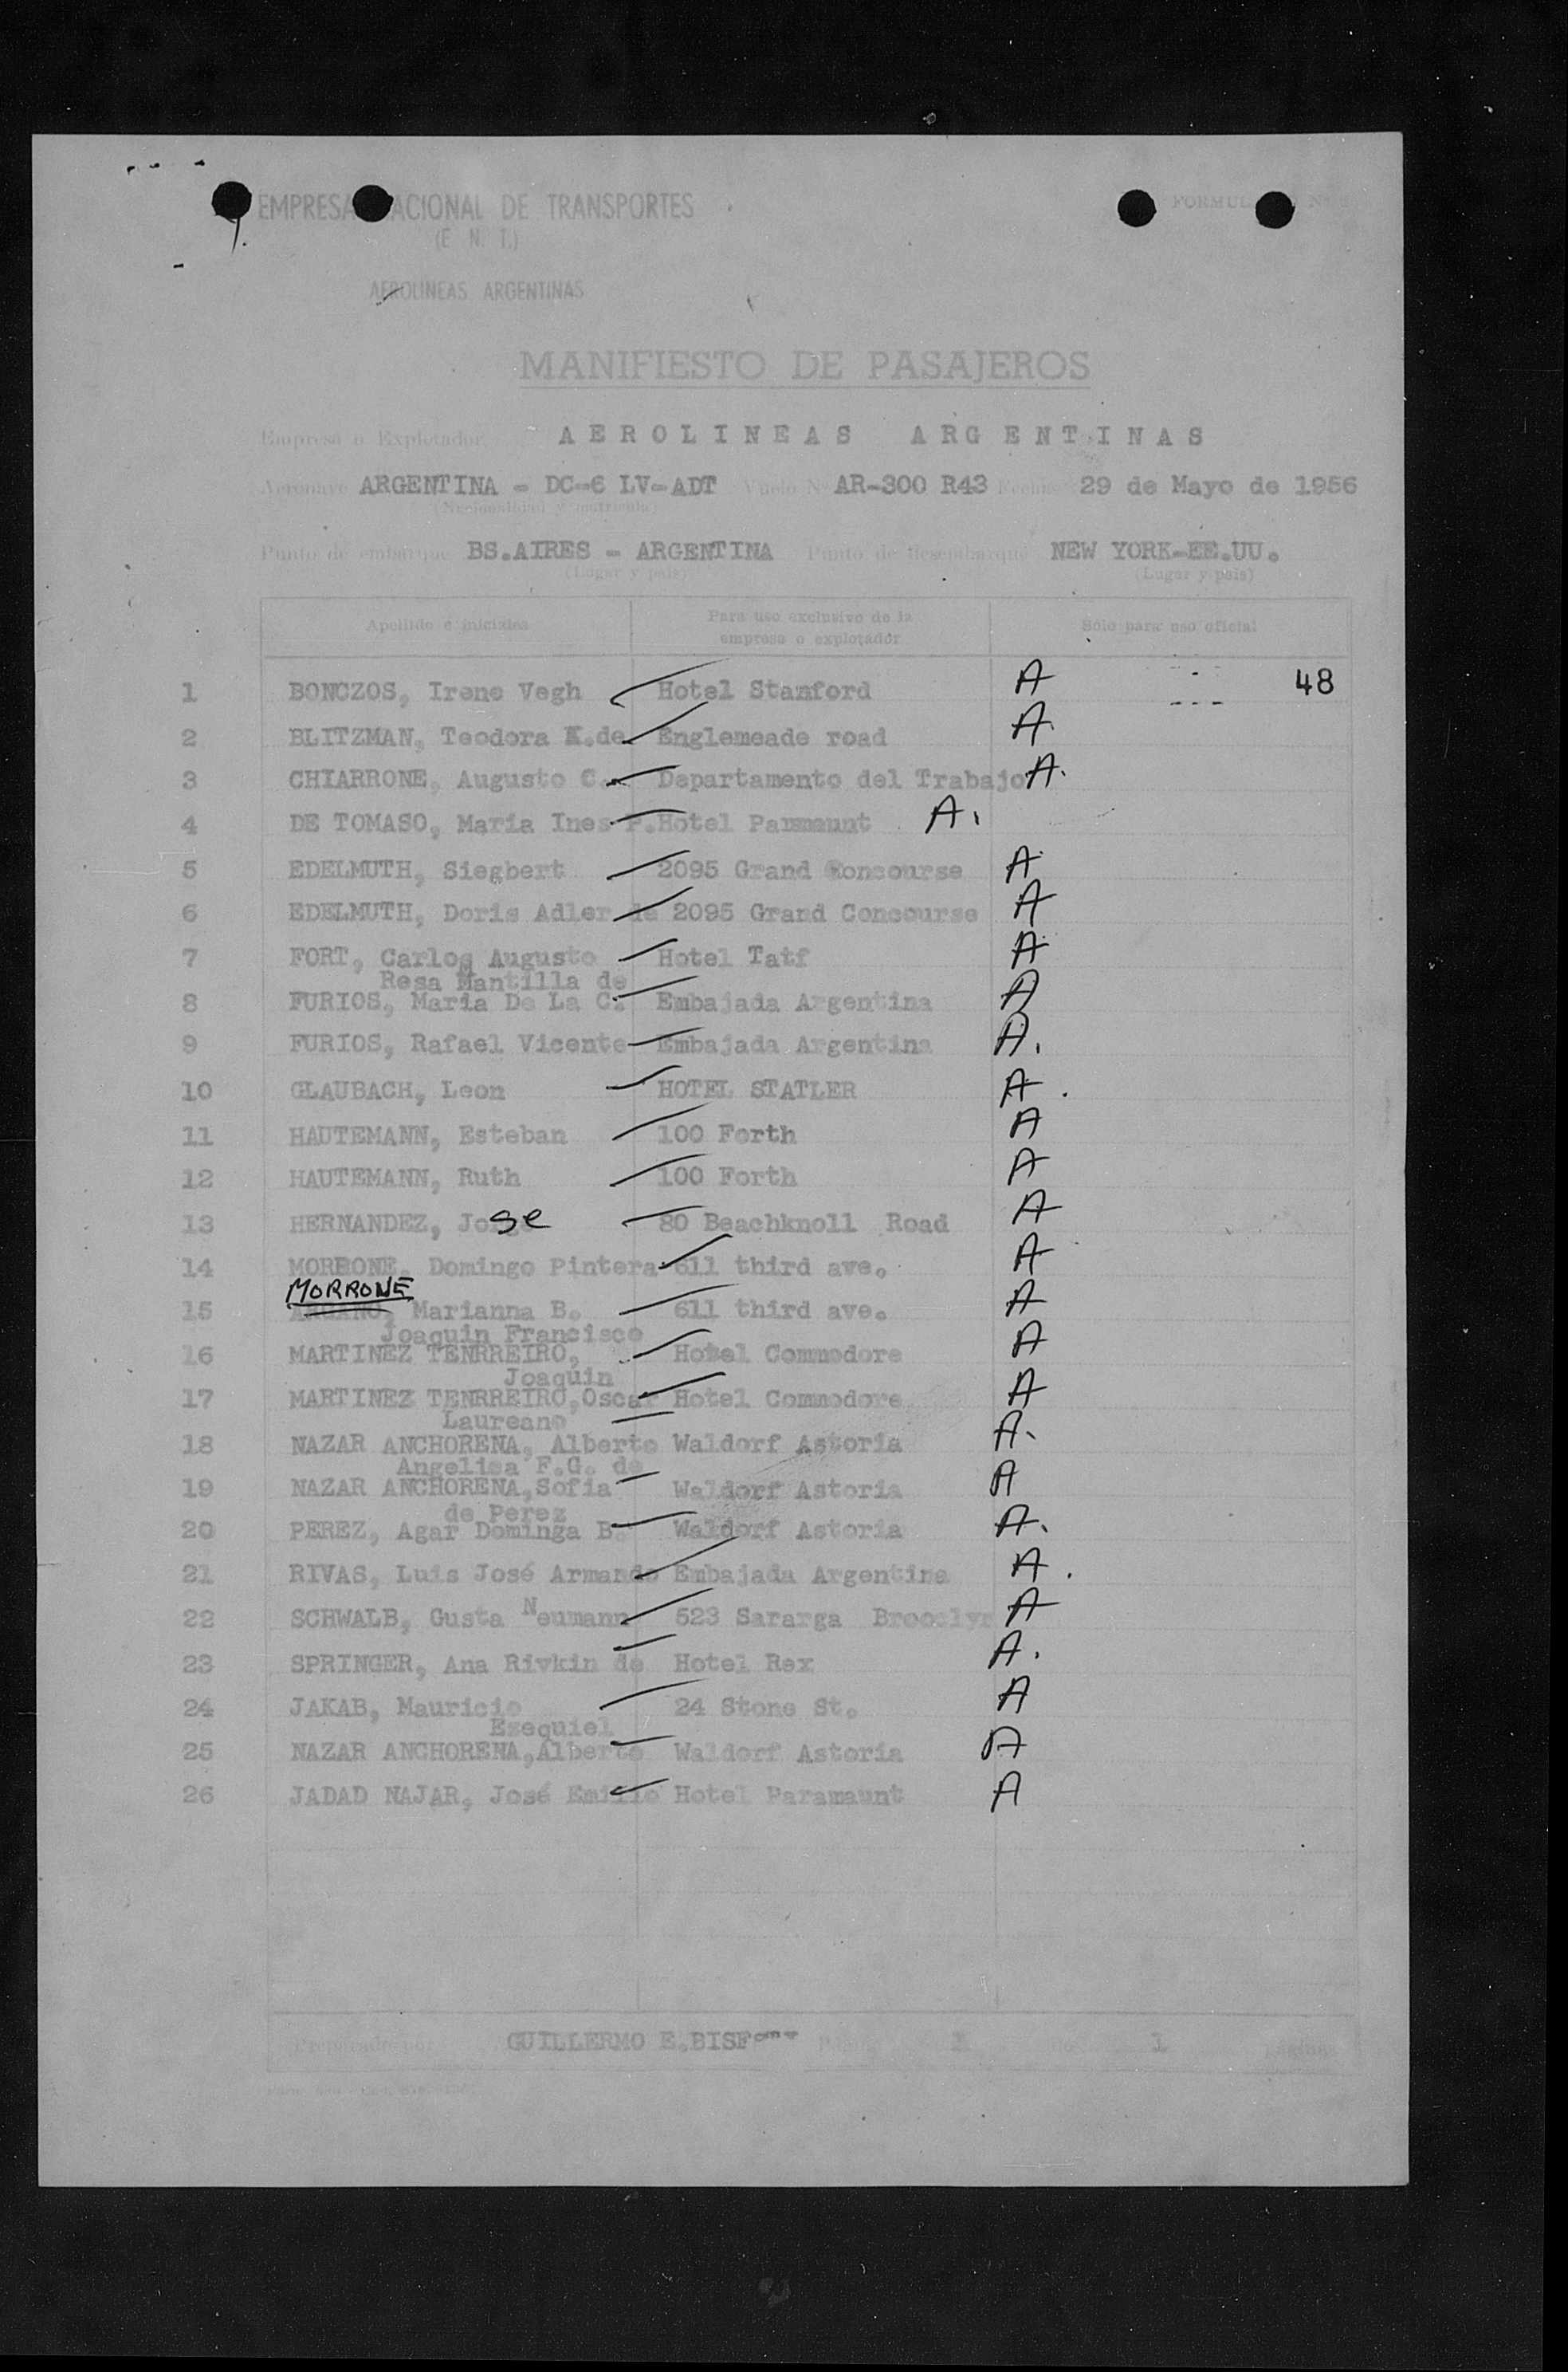 EMPRESA NACIONAL DE TRANSPORTES
(E. N. T.)
FORMUL
AEROLINEAS ARGENTINAS
MANIFIESTO DE PASAJEROS
Empresa o Explotador AEROLINEAS ARGENTINAS
Aeronave ARGENTINA - DC-6 LV-ADT Vuelo Nº AR-300 R43 Fecha 29 de Mayo de 1956
(Nacionalidad y matrícula)
Punto de embarque BS.AIRES - ARGENTINA Punto de desembarque NEW YORK-EE.UU.
(Lugar y país) (Lugar y país)
Apellido e iniciales Para uso exclusivo de la empresa o explotador Sólo para uso oficial
1 BONCZOS, Irene Vegh Hotel Stamford A 48
2 BLITZMAN, Teodora K.de Englemeade road A
3 CHIARRONE, Augusto C. Departamento del Trabajo A.
4 DE TOMASO, Maria Ines P. Hotel Parmmaunt A.
5 EDELMUTH, Siegbert 2095 Grand Concourse A
6 EDELMUTH, Doris Adler de 2095 Grand Concourse A
7 FORT, Carlos Augusto Hotel Tatf A
Rosa Mantilla de
8 FURIOS, Maria De La C. Embajada Argentina A
9 FURIOS, Rafael Vicente Embajada Argentina A.
10 GLAUBACH, Leon HOTEL STATLER A.
11 HAUTEMANN, Esteban 100 Forth A
12 HAUTEMANN, Ruth 100 Forth A
13 HERNANDEZ, Jose 80 Beachknoll Road A
14 MORRONE, Domingo Pintera 611 third ave. A
MORRONE
15 ARGANO, Marianna B. 611 third ave. A
Joaquin Francisco
16 MARTINEZ TENRREIRO, Hotel Commodore A
Joaquin
17 MARTINEZ TENRREIRO,Oscar Hotel Commodore A
Laureano
18 NAZAR ANCHORENA, Alberto Waldorf Astoria A.
Angelica F.G. de
19 NAZAR ANCHORENA,Sofia Waldorf Astoria A
de Perez
20 PEREZ, Agar Dominga B. Waldorf Astoria A.
21 RIVAS, Luis José Armando Embajada Argentina A.
22 SCHWALB, Gusta Neumann 523 Sararga Brooclyn A
23 SPRINGER, Ana Rivkin de Hotel Rex A.
24 JAKAB, Mauricio 24 Stone St. A
Ezequiel
25 NAZAR ANCHORENA,Alberto Waldorf Astoria A
26 JADAD NAJAR, José Emilio Hotel Paramaunt A
Preparado por GUILLERMO E.BISF 1